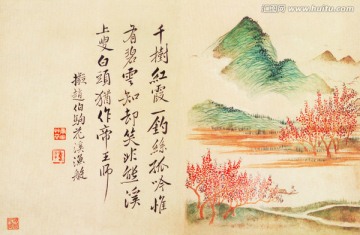 千樹紅霞一釣絲孤吟惟
有碧雲知却笑非熊溪
上叟白頭猶作帝王師
擬趙伯駒花溪漁艇
www.huitu.com